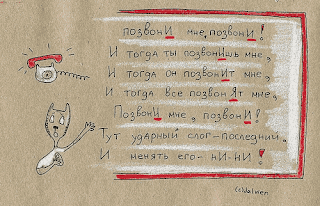 позвонИ мне, позвонИ!
И тогда ты позвонИшь мне,
И тогда он позвонИт мне,
И тогда все позвонЯт мне,
ПозвонИ мне, позвонИ!
Тут ударный слог-последний,
И менять его- нИ-нИ!